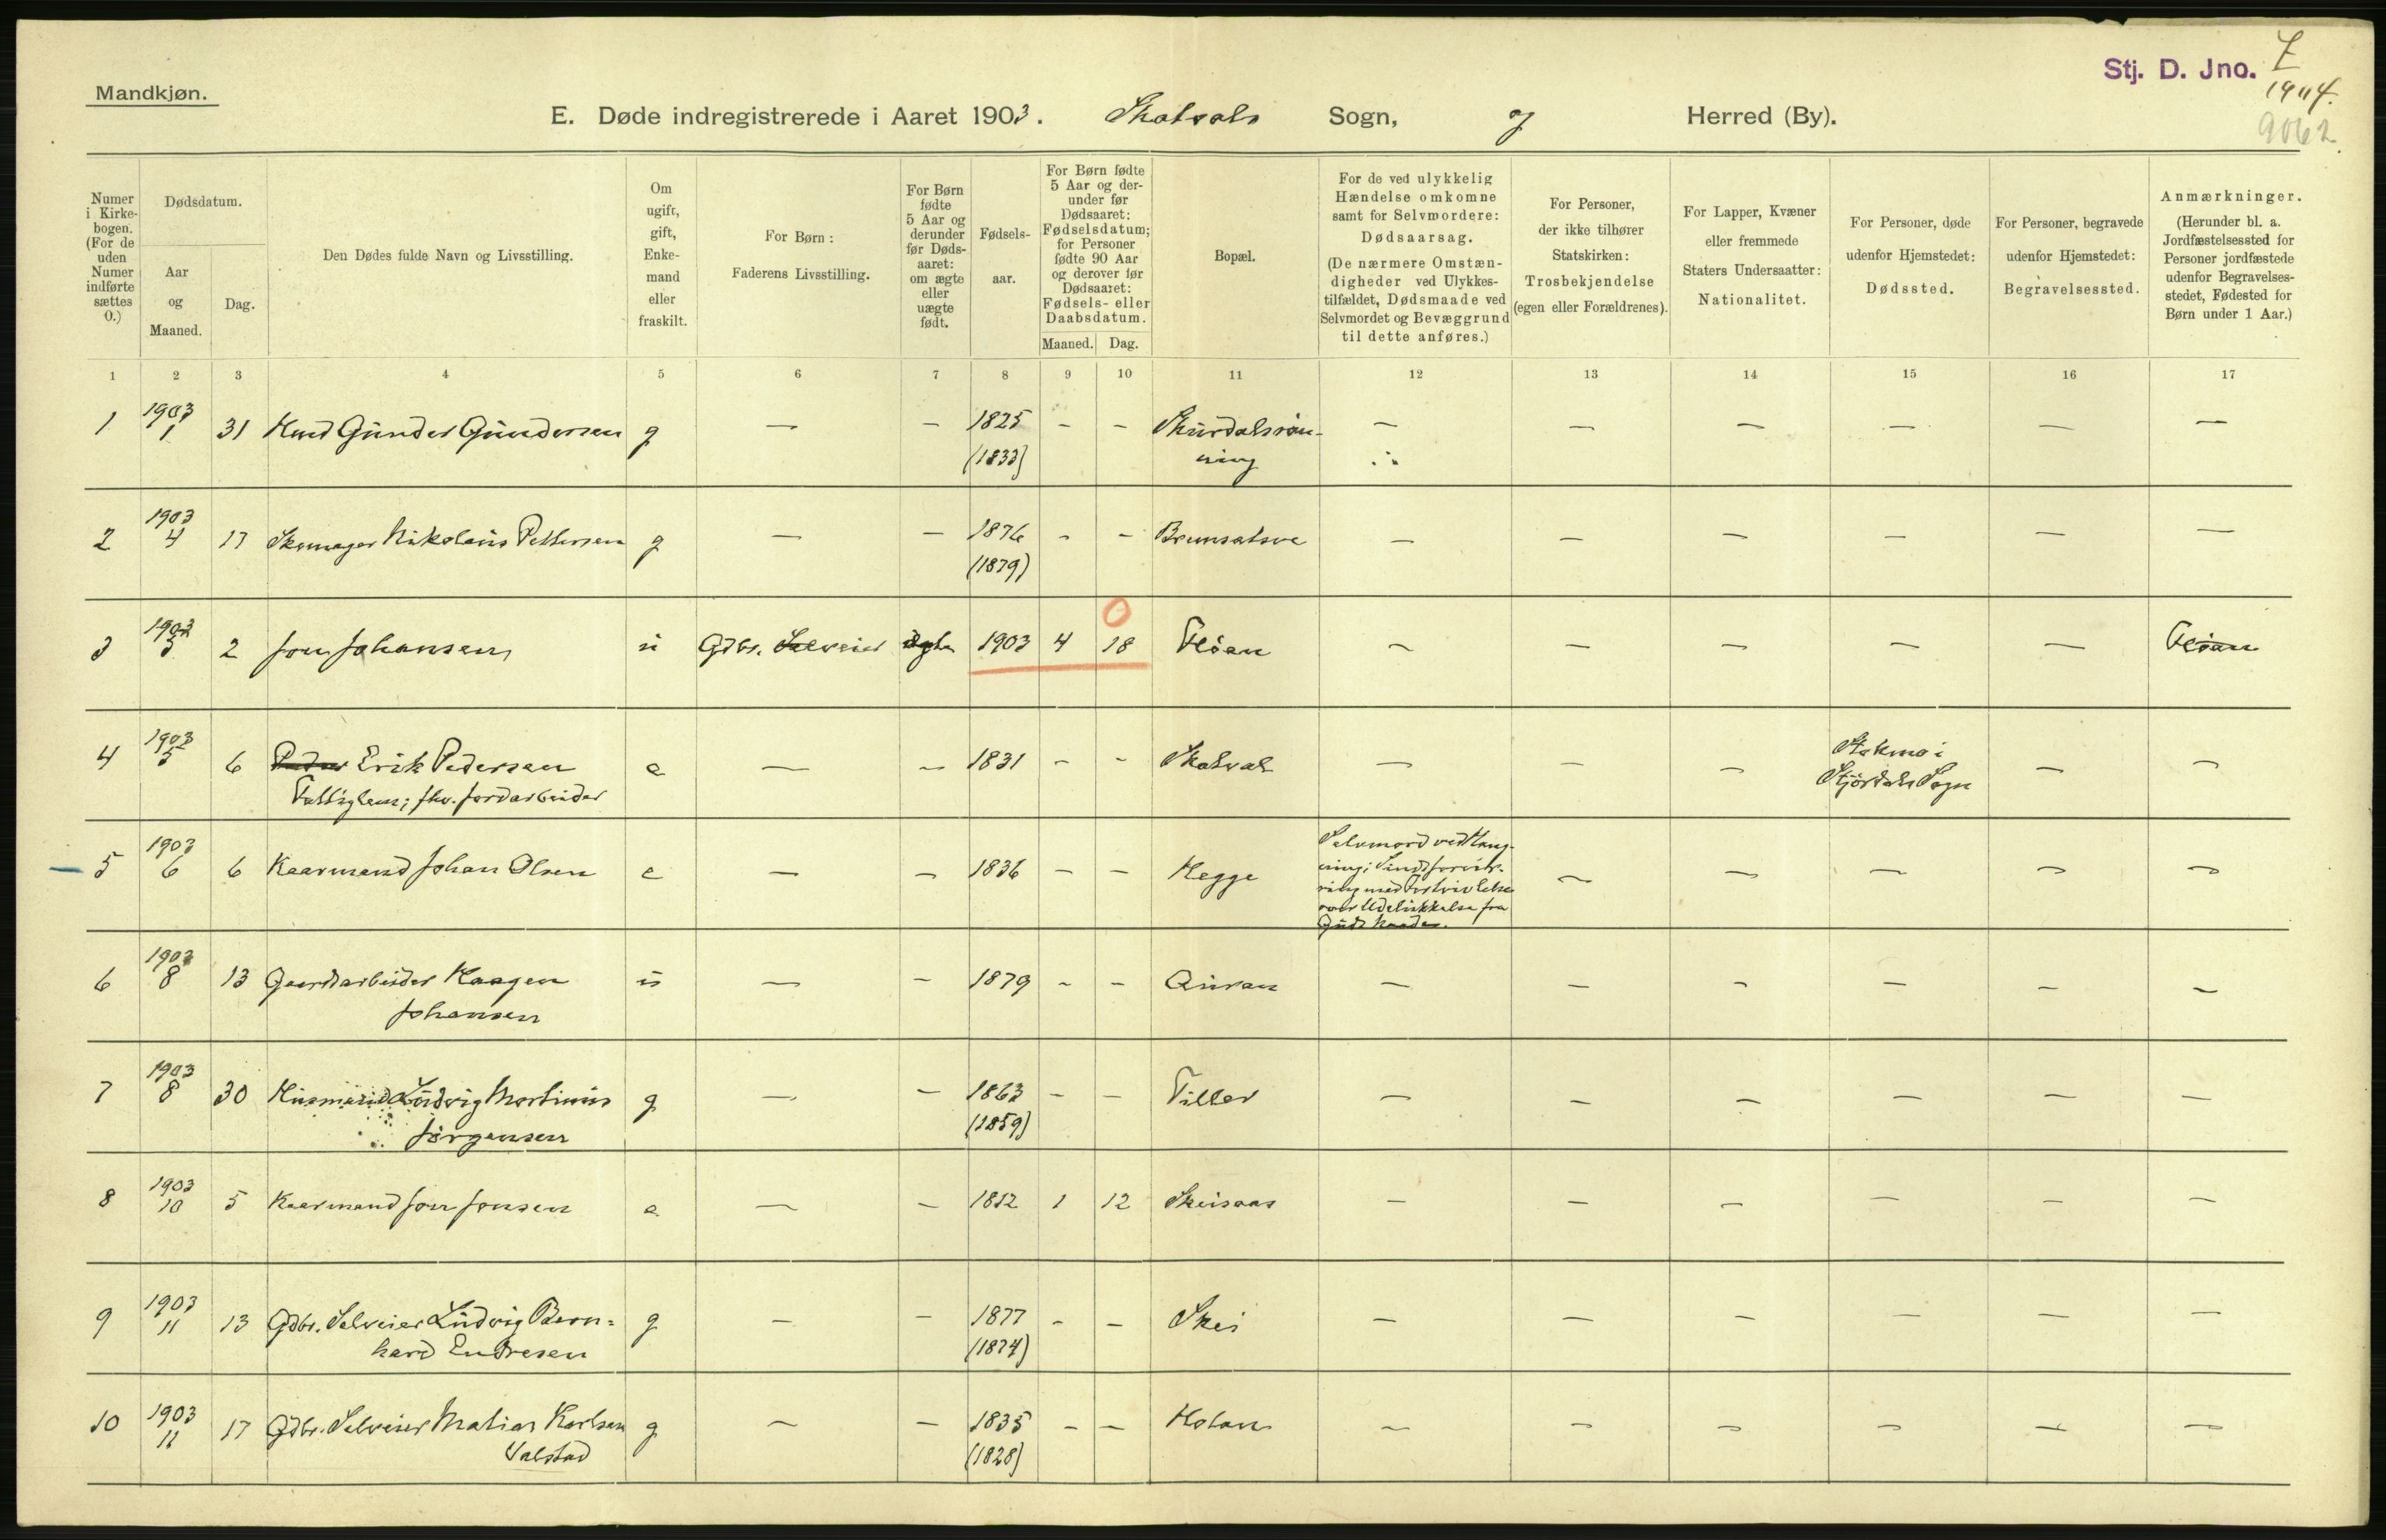 Mandkjøn.
Stj. D. Jno. 7
1904.
9062
E. Døde indregistrerede i Aaret 1903. Skatvals Sogn, Herred (By).
Numer i Kirkebogen. (For de uden Numer indførte sættes 0.)
Dødsdatum.
Aar og Maaned.
Dag.
Den Dødes fulde Navn og Livsstilling.
Om ugift, gift, Enkemand eller fraskilt.
For Børn: Faderens Livsstilling.
For Børn fødte 5 Aar og derunder før Dødsaaret: om ægte eller uægte født.
Fødselsaar.
For Børn fødte 5 Aar og derunder før Dødsaaret: Fødselsdatum; for Personer fødte 90 Aar og derover før Dødsaaret: Fødsels- eller Daabsdatum.
Maaned. Dag.
Bopæl.
For de ved ulykkelig Hændelse omkomne samt for Selvmordere: Dødsaarsag. (De nærmere Omstændigheder ved Ulykkestilfældet, Dødsmaade ved Selvmordet og Bevæggrund til dette anføres.)
For Personer, der ikke tilhører Statskirken: Trosbekjendelse (egen eller Forældrenes).
For Lapper, Kvæner eller fremmede Staters Undersaatter: Nationalitet.
For Personer, døde udenfor Hjemstedet: Dødssted.
For Personer, begravede udenfor Hjemstedet: Begravelsessted.
Anmærkninger. (Herunder bl. a. Jordfæstelsessted for Personer jordfæstede udenfor Begravelsesstedet, Fødested for Børn under 1 Aar.)
1 2 3 4 5 6 7 8 9 10 11 12 13 14 15 16 17
1 1903 1 31 Husmd Gunder Gundersen g — — 1825 - - Skurdalsrøn-
(1833) ning
2 1903 4 17 Skomager Nikolaus Pettersen g — — 1876 - -
(1879)
3 1903 5 2 Jon Johansen u Gdbr. Selveier ægte 1903 4 18 Fløan — — — — — Fløan
4 1903 5 6 Peder Erik Pedersen e — — 1831 - - Skatval — — — Stokmo i — —
Fattiglem; fhv. Jordarbeider Stjørdals Sogn
5 1903 6 6 Kaarmand Johan Olsen e — — 1836 - - Hegge Selvmord ved Hæng-
ning; Sindsforvir-
ring med Fortvivlelse
over Udelukkelse fra
Guds Naade.
6 1903 8 13 Gaardarbeider Haagen u — — 1879 - - Auran — — — — — —
Johansen
7 1903 8 30 Husmand Ludvig Martinus g — — 1863 - - Tiller — — — — — —
Jørgensen (1859)
8 1903 10 5 Kaarmand Jon Jonsen e — — 1812 1 12 Skeisaas — — — — — —
9 1903 11 13 Gdbr. Selveier Ludvig Bern= g — — 1877 - - Skei — — — — — —
hard Endresen (1874)
10 1903 11 17 Gdbr. Selveier Matias Karlsen g — — 1835 - - Holan — — — — — —
Valstad (1828)